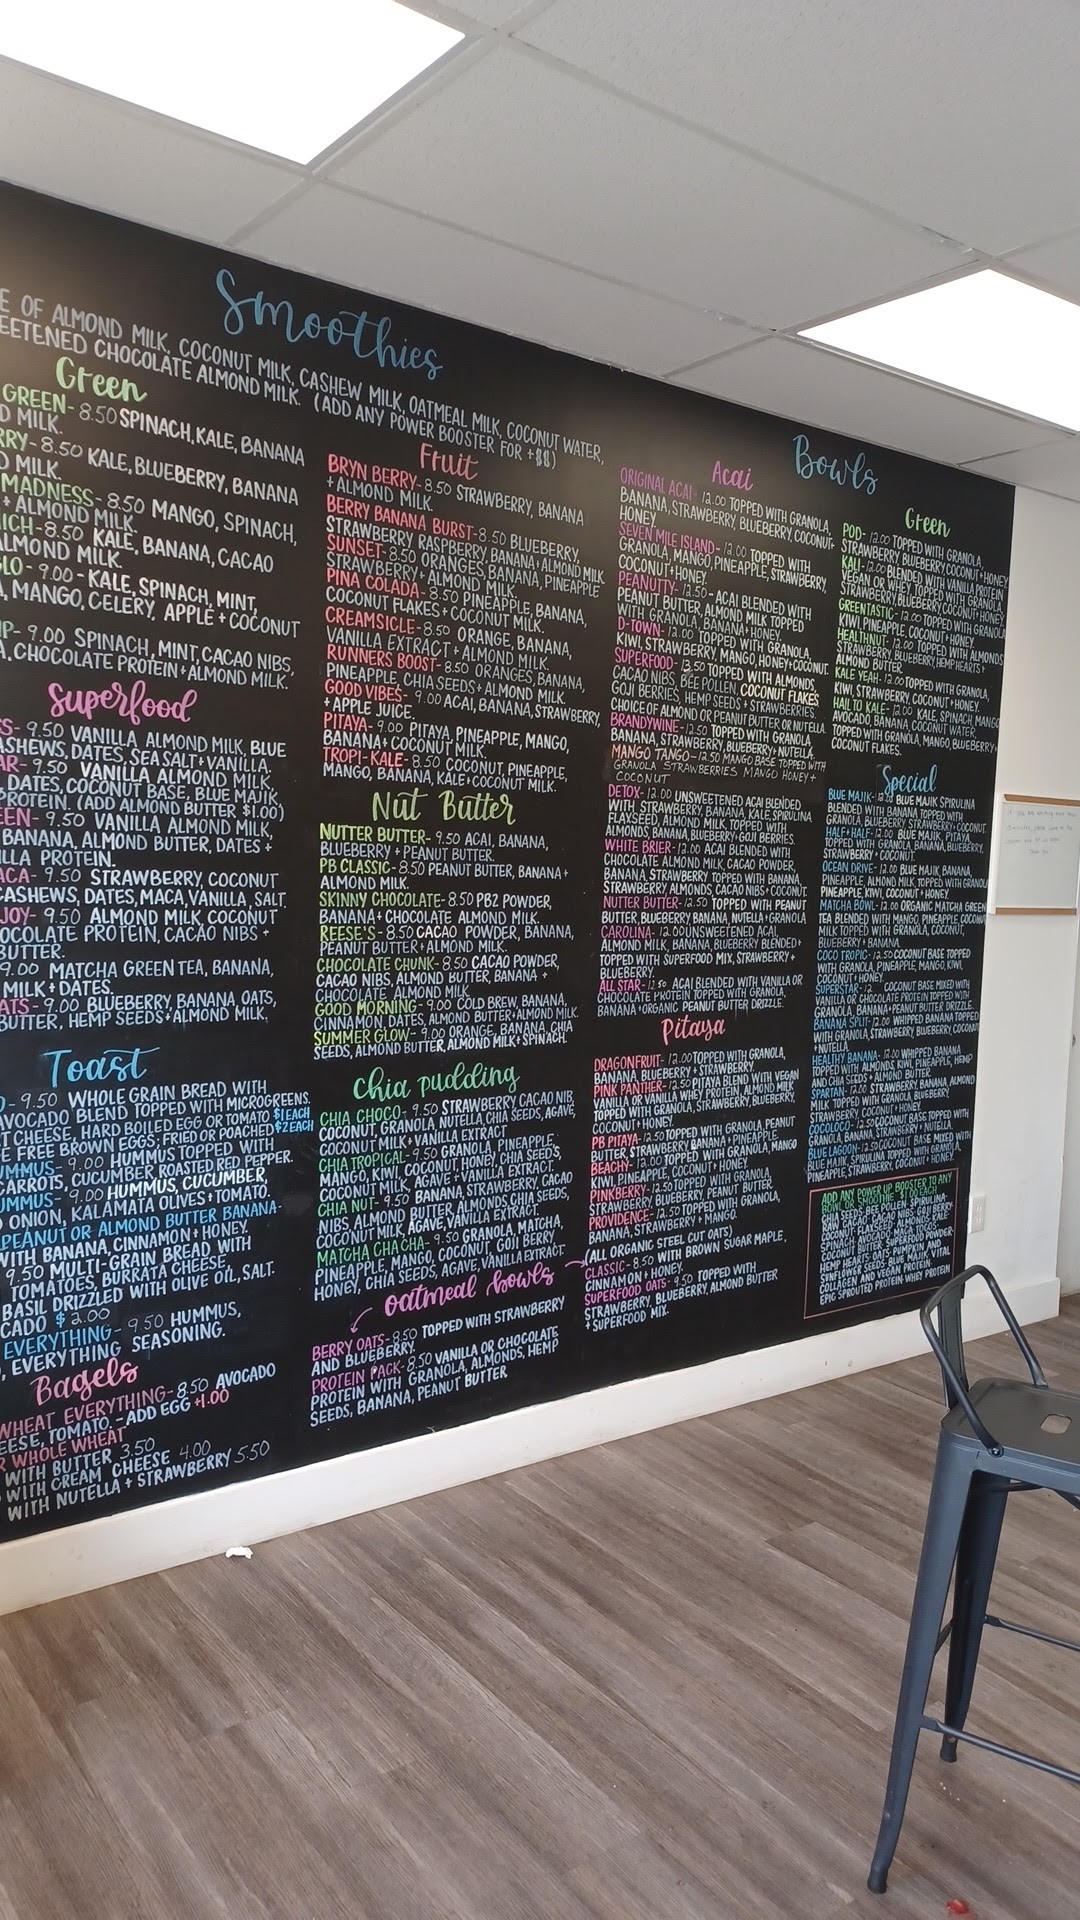 Smoothies
E OF ALMOND MILK, COCONUT MILK, CASHEW MILK, OATMEAL MILK, COCONUT WATER,
EETENED CHOCOLATE ALMOND MILK. (ADD ANY POWER BOOSTER FOR +$$)
Green
GREEN- 8.50 SPINACH, KALE, BANANA
D MILK.
RRY- 8.50 KALE, BLUEBERRY, BANANA
D MILK.
MADNESS- 8.50 MANGO, SPINACH,
+ ALMOND MILK.
ICH- 8.50 KALE, BANANA, CACAO
ALMOND MILK.
LO- 9.00 - KALE, SPINACH, MINT,
A, MANGO, CELERY, APPLE + COCONUT
IP- 9.00 SPINACH, MINT, CACAO NIBS,
A, CHOCOLATE PROTEIN + ALMOND MILK.
Superfood
S- 9.50 VANILLA, ALMOND MILK, BLUE
ASHEWS, DATES, SEA SALT + VANILLA
AR- 9.50 VANILLA ALMOND MILK,
DATES, COCONUT BASE, BLUE MAJIK,
PROTEIN. (ADD ALMOND BUTTER $1.00)
EEN- 9.50 VANILLA ALMOND MILK,
BANANA, ALMOND BUTTER, DATES +
LLA PROTEIN.
ACA- 9.50 STRAWBERRY, COCONUT
CASHEWS, DATES, MACA, VANILLA, SALT.
JOY- 9.50 ALMOND MILK, COCONUT
OCOLATE PROTEIN, CACAO NIBS +
BUTTER.
9.00 MATCHA GREEN TEA, BANANA,
MILK + DATES.
ATS- 9.00 BLUEBERRY, BANANA, OATS,
BUTTER, HEMP SEEDS + ALMOND MILK,
Toast
O- 9.50 WHOLE GRAIN BREAD WITH
AVOCADO BLEND TOPPED WITH MICROGREENS.
T CHEESE, HARD BOILED EGG OR TOMATO $1 EACH
E FREE BROWN EGGS; FRIED OR POACHED $2 EACH
UMMUS- 9.00 HUMMUS TOPPED WITH
CARROTS, CUCUMBER, ROASTED RED PEPPER.
UMMUS- 9.00 HUMMUS, CUCUMBER,
D ONION, KALAMATA OLIVES + TOMATO.
PEANUT OR ALMOND BUTTER BANANA-
WITH BANANA, CINNAMON + HONEY.
9.50 MULTI-GRAIN BREAD WITH
TOMATOES, BURRATA CHEESE,
BASIL DRIZZLED WITH OLIVE OIL, SALT.
CADO $2.00
EVERYTHING- 9.50 HUMMUS,
, EVERYTHING SEASONING.
Bagels
WHEAT EVERYTHING- 8.50 AVOCADO
EESE, TOMATO. - ADD EGG +1.00
R WHOLE WHEAT
WITH BUTTER 3.50
WITH CREAM CHEESE 4.00
WITH NUTELLA + STRAWBERRY 5.50
Fruit
BRYN BERRY- 8.50 STRAWBERRY, BANANA
+ ALMOND MILK.
BERRY BANANA BURST- 8.50 BLUEBERRY,
STRAWBERRY RASPBERRY, BANANA + ALMOND MILK
SUNSET- 8.50 ORANGES, BANANA, PINEAPPLE
STRAWBERRY + ALMOND MILK.
PINA COLADA- 8.50 PINEAPPLE, BANANA,
COCONUT FLAKES + COCONUT MILK.
CREAMSICLE- 8.50 ORANGE, BANANA,
VANILLA EXTRACT + ALMOND MILK.
RUNNERS BOOST- 8.50 ORANGES, BANANA,
PINEAPPLE, CHIA SEEDS + ALMOND MILK.
GOOD VIBES- 9.00 ACAI, BANANA, STRAWBERRY,
+ APPLE JUICE.
PITAYA- 9.00 PITAYA, PINEAPPLE, MANGO,
BANANA + COCONUT MILK.
TROPI-KALE- 8.50 COCONUT, PINEAPPLE,
MANGO, BANANA, KALE + COCONUT MILK.
Nut Butter
NUTTER BUTTER- 9.50 ACAI, BANANA,
BLUEBERRY + PEANUT BUTTER.
PB CLASSIC- 8.50 PEANUT BUTTER, BANANA +
ALMOND MILK.
SKINNY CHOCOLATE- 8.50 PB2 POWDER,
BANANA + CHOCOLATE ALMOND MILK.
REESE'S- 8.50 CACAO POWDER, BANANA,
PEANUT BUTTER + ALMOND MILK.
CHOCOLATE CHUNK- 8.50 CACAO POWDER,
CACAO NIBS, ALMOND BUTTER, BANANA +
CHOCOLATE, ALMOND MILK.
GOOD MORNING- 9.00 COLD BREW, BANANA,
CINNAMON, DATES, ALMOND BUTTER + ALMOND MILK.
SUMMER GLOW- 9.00 ORANGE, BANANA, CHIA
SEEDS, ALMOND BUTTER, ALMOND MILK + SPINACH.
Chia pudding
CHIA CHOCO- 9.50 STRAWBERRY, CACAO NIB,
COCONUT, GRANOLA, NUTELLA, CHIA SEEDS, AGAVE,
COCONUT MILK + VANILLA EXTRACT
CHIA TROPICAL- 9.50 GRANOLA, PINEAPPLE
MANGO, KIWI, COCONUT, HONEY, CHIA SEEDS,
COCONUT MILK, AGAVE + VANILLA EXTRACT.
CHIA NUT- 9.50 BANANA, STRAWBERRY, CACAO
NIBS, ALMOND BUTTER, ALMONDS, CHIA SEEDS,
COCONUT MILK, AGAVE, VANILLA EXTRACT.
MATCHA CHACHA- 9.50 GRANOLA, MATCHA,
PINEAPPLE, MANGO, COCONUT, GOJI BERRY
HONEY, CHIA SEEDS, AGAVE, VANILLA EXTRACT.
oatmeal bowls
BERRY OATS- 8.50 TOPPED WITH STRAWBERRY
AND BLUEBERRY.
PROTEIN PACK- 8.50 VANILLA OR CHOCOLATE
PROTEIN WITH GRANOLA, ALMONDS, HEMP
SEEDS, BANANA, PEANUT BUTTER
Bowls
Acai
ORIGINAL ACAI- 12.00 TOPPED WITH GRANOLA,
BANANA, STRAWBERRY, BLUEBERRY, COCONUT +
HONEY.
SEVEN MILE ISLAND- 12.00 TOPPED WITH
GRANOLA, MANGO, PINEAPPLE, STRAWBERRY
COCONUT + HONEY.
PEANUTTY- 12.50 - ACAI BLENDED WITH
PEANUT BUTTER, ALMOND MILK TOPPED
WITH GRANOLA, BANANA + HONEY.
D-TOWN- 12.00 TOPPED WITH GRANOLA,
KIWI, STRAWBERRY, MANGO, HONEY + COCONUT.
SUPERFOOD- 13.50 TOPPED WITH ALMONDS,
CACAO NIBS, BEE POLLEN, COCONUT FLAKES
GOJI BERRIES, HEMP SEEDS + STRAWBERRIES.
CHOICE OF ALMOND OR PEANUT BUTTER OR NUTELLA
BRANDYWINE- 12.50 TOPPED WITH GRANOLA,
BANANA, STRAWBERRY, BLUEBERRY + NUTELLA.
MANGO TANGO- 12.50 MANGO BASE TOPPED WITH
GRANOLA STRAWBERRIES MANGO HONEY +
COCONUT
DETOX- 12.00 UNSWEETENED ACAI BLENDED
WITH STRAWBERRY, BANANA, KALE, SPIRULINA
FLAXSEED, ALMOND MILK TOPPED WITH
ALMONDS, BANANA, BLUEBERRY + GOJI BERRIES.
WHITE BRIER- 12.00 ACAI BLENDED WITH
CHOCOLATE ALMOND MILK, CACAO POWDER,
BANANA, STRAWBERRY TOPPED WITH BANANA
STRAWBERRY, ALMONDS, CACAO NIBS + COCONUT.
NUTTER BUTTER- 12.50 TOPPED WITH PEANUT
BUTTER, BLUEBERRY, BANANA, NUTELLA + GRANOLA
CAROLINA- 12.00 UNSWEETENED ACAI,
ALMOND MILK, BANANA, BLUEBERRY BLENDED +
TOPPED WITH SUPERFOOD MIX, STRAWBERRY +
BLUEBERRY.
ALL STAR- 12.50 ACAI BLENDED WITH VANILLA OR
CHOCOLATE PROTEIN TOPPED WITH GRANOLA,
BANANA + ORGANIC PEANUT BUTTER DRIZZLE.
Pitaya
DRAGONFRUIT- 12.00 TOPPED WITH GRANOLA,
BANANA, BLUEBERRY + STRAWBERRY
PINK PANTHER- 12.50 PITAYA BLEND WITH VEGAN
VANILLA OR VANILLA WHEY PROTEIN + ALMOND MILK
TOPPED WITH GRANOLA, STRAWBERRY, BLUEBERRY,
HONEY.
PB PITAYA- 12.50 TOPPED WITH GRANOLA PEANUT
BUTTER, STRAWBERRY, BANANA + PINEAPPLE.
BEACHY- 12.00 TOPPED WITH GRANOLA, MANGO
KIWI, PINEAPPLE, HONEY.
PINKBERRY- 12.50 TOPPED WITH GRANOLA,
STRAWBERRY, BLUEBERRY, PEANUT BUTTER,
PROVIDENCE- 12.50 TOPPED WITH GRANOLA,
BANANA, STRAWBERRY + MANGO.
(ALL ORGANIC STEEL CUT OATS)
CLASSIC- 8.50 WITH BROWN SUGAR, MAPLE,
CINNAMON + HONEY.
SUPERFOOD OATS- 9.50 TOPPED WITH
STRAWBERRY, BLUEBERRY, ALMOND BUTTER
+ SUPERFOOD MIX.
Green
POD- 12.00 TOPPED WITH GRANOLA,
STRAWBERRY, BLUEBERRY, COCONUT + HONEY
KALI- 12.00 BLENDED WITH VANILLA PROTEIN
VEGAN OR WHEY TOPPED WITH GRANOLA,
STRAWBERRY, BLUEBERRY, COCONUT, HONEY.
GREENTASTIC- 12.00 TOPPED WITH GRANOLA
KIWI, PINEAPPLE, COCONUT + HONEY.
HEALTHNUT- 12.00 TOPPED WITH ALMONDS
STRAWBERRY, BLUEBERRY, HEMP HEARTS +
ALMOND BUTTER.
KALE YEAH- 12.00 TOPPED WITH GRANOLA,
KIWI, STRAWBERRY, COCONUT + HONEY.
HAIL TO KALE- 12.00 KALE, SPINACH, MANGO
AVOCADO, BANANA, COCONUT WATER
TOPPED WITH GRANOLA, MANGO, BLUEBERRY +
COCONUT FLAKES.
Special
BLUE MAJIK- BLUE MAJIK SPIRULINA
BLENDED WITH BANANA TOPPED WITH
GRANOLA, BLUEBERRY, STRAWBERRY + COCONUT.
HALF + HALF- 12.00 BLUE MAJIK, PITAYA
TOPPED WITH GRANOLA, BANANA, BLUEBERRY,
STRAWBERRY + COCONUT.
OCEAN DRIVE- 12.00 BLUE MAJIK, BANANA,
PINEAPPLE, ALMOND MILK, TOPPED WITH GRANOLA
PINEAPPLE, KIWI, COCONUT + HONEY.
MATCHA BOWL- 12.00 ORGANIC MATCHA GREEN
TEA BLENDED WITH MANGO, PINEAPPLE, COCONUT
MILK TOPPED WITH GRANOLA, COCONUT,
BLUEBERRY + BANANA.
COCO TROPIC- 12.50 COCONUT BASE TOPPED
WITH GRANOLA, PINEAPPLE, MANGO, KIWI,
COCONUT + HONEY
SUPERSTAR- COCONUT BASE MIXED WITH
VANILLA OR CHOCOLATE PROTEIN TOPPED WITH
GRANOLA, BANANA + PEANUT BUTTER DRIZZLE.
BANANA SPLIT- 12.00 WHIPPED BANANA TOPPED
WITH GRANOLA, STRAWBERRY, BLUEBERRY, COCONUT
+ NUTELLA
HEALTHY BANANA- 12.00 WHIPPED BANANA
TOPPED WITH ALMONDS, KIWI, PINEAPPLE, HEMP
AND CHIA SEEDS + ALMOND BUTTER.
SPARTAN- STRAWBERRY, BANANA, ALMOND
MILK TOPPED WITH GRANOLA, BLUEBERRY,
STRAWBERRY, COCONUT + HONEY.
COCOLOCO- 12.50 COCONUT BASE TOPPED WITH
GRANOLA, BANANA, STRAWBERRY + NUTELLA
BLUE LAGOON- 12.50 COCONUT BASE MIXED WITH
BLUE MAJIK, SPIRULINA TOPPED WITH GRANOLA,
PINEAPPLE, STRAWBERRY, COCONUT + HONEY.
ADD ANY POWER UP BOOSTER TO ANY
BOWL OR SMOOTHIE $1.00 EACH
SUNFLOWER SEEDS,
COLLAGEN AND VEGAN PROTEIN
EPIC SPROUTED PROTEIN, WHEY PROTEIN